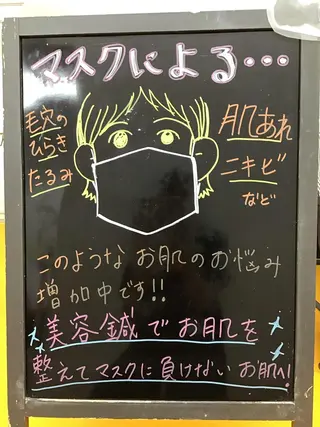 マスクによる…
毛穴の
ひらき
たるみ
肌あれ
ニキビ
など
このようなお肌のお悩み
増加中です!!
美容鍼でお肌を
整えてマスクに負けないお肌へ!